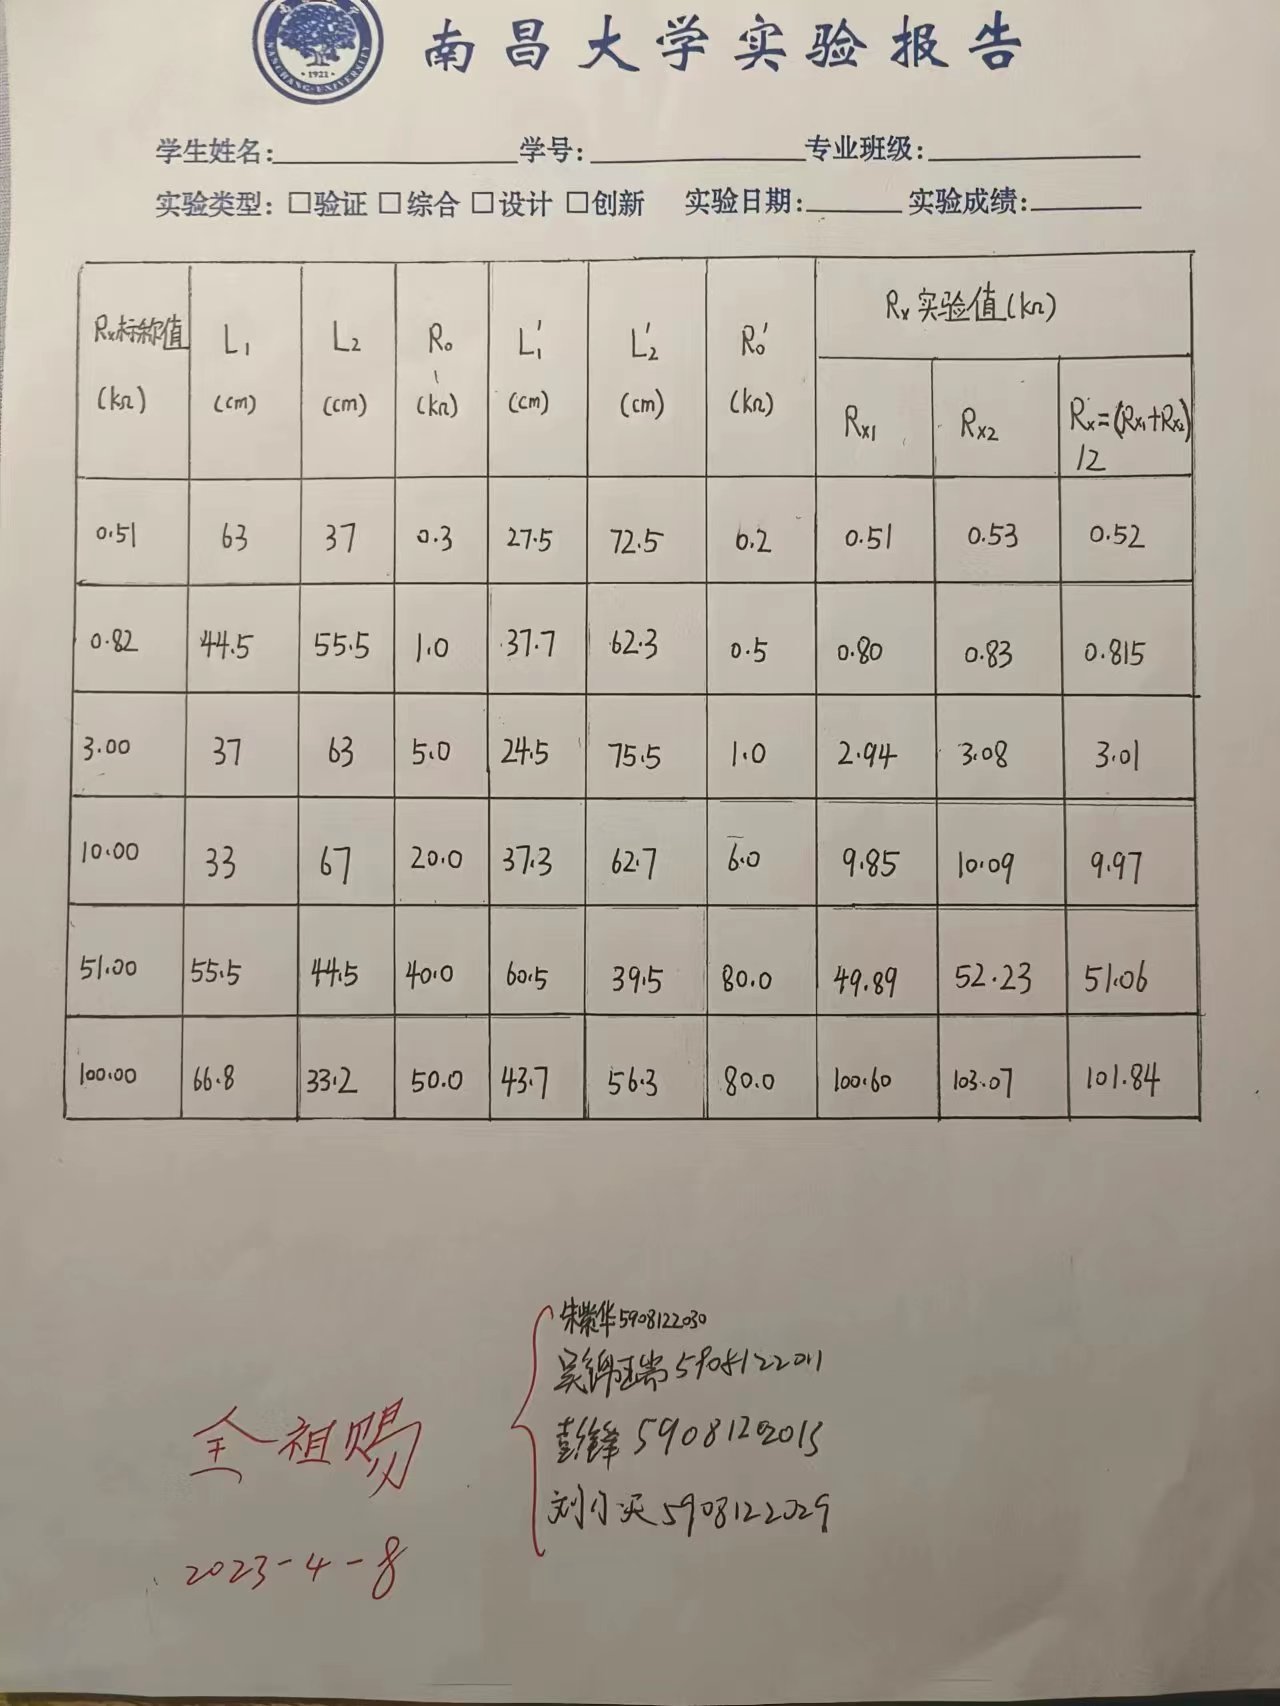 NANCHANG UNIVERSITY
·1921·
南昌大学实验报告
学生姓名: 学号: 专业班级:
实验类型: □验证 □综合 □设计 □创新 实验日期: 实验成绩:
Rx标称值 (kΩ) L₁ (cm) L₂ (cm) R₀ (kΩ) L₁' (cm) L₂' (cm) R₀' (kΩ) Rx实验值(kΩ)
Rx1 Rx2 Rx=(Rx1+Rx2)/2
0.51 63 37 0.3 27.5 72.5 0.2 0.51 0.53 0.52
0.82 44.5 55.5 1.0 37.7 62.3 0.5 0.80 0.83 0.815
3.00 37 63 5.0 24.5 75.5 1.0 2.94 3.08 3.01
10.00 33 67 20.0 37.3 62.7 6.0 9.85 10.09 9.97
51.00 55.5 44.5 40.0 60.5 39.5 80.0 49.89 52.23 51.06
100.00 66.8 33.2 50.0 43.7 56.3 80.0 100.60 103.07 101.84
朱紫华5908122030
吴锦瑞5908122011
彭锋
全祖赐
5908122029
2023-4-8